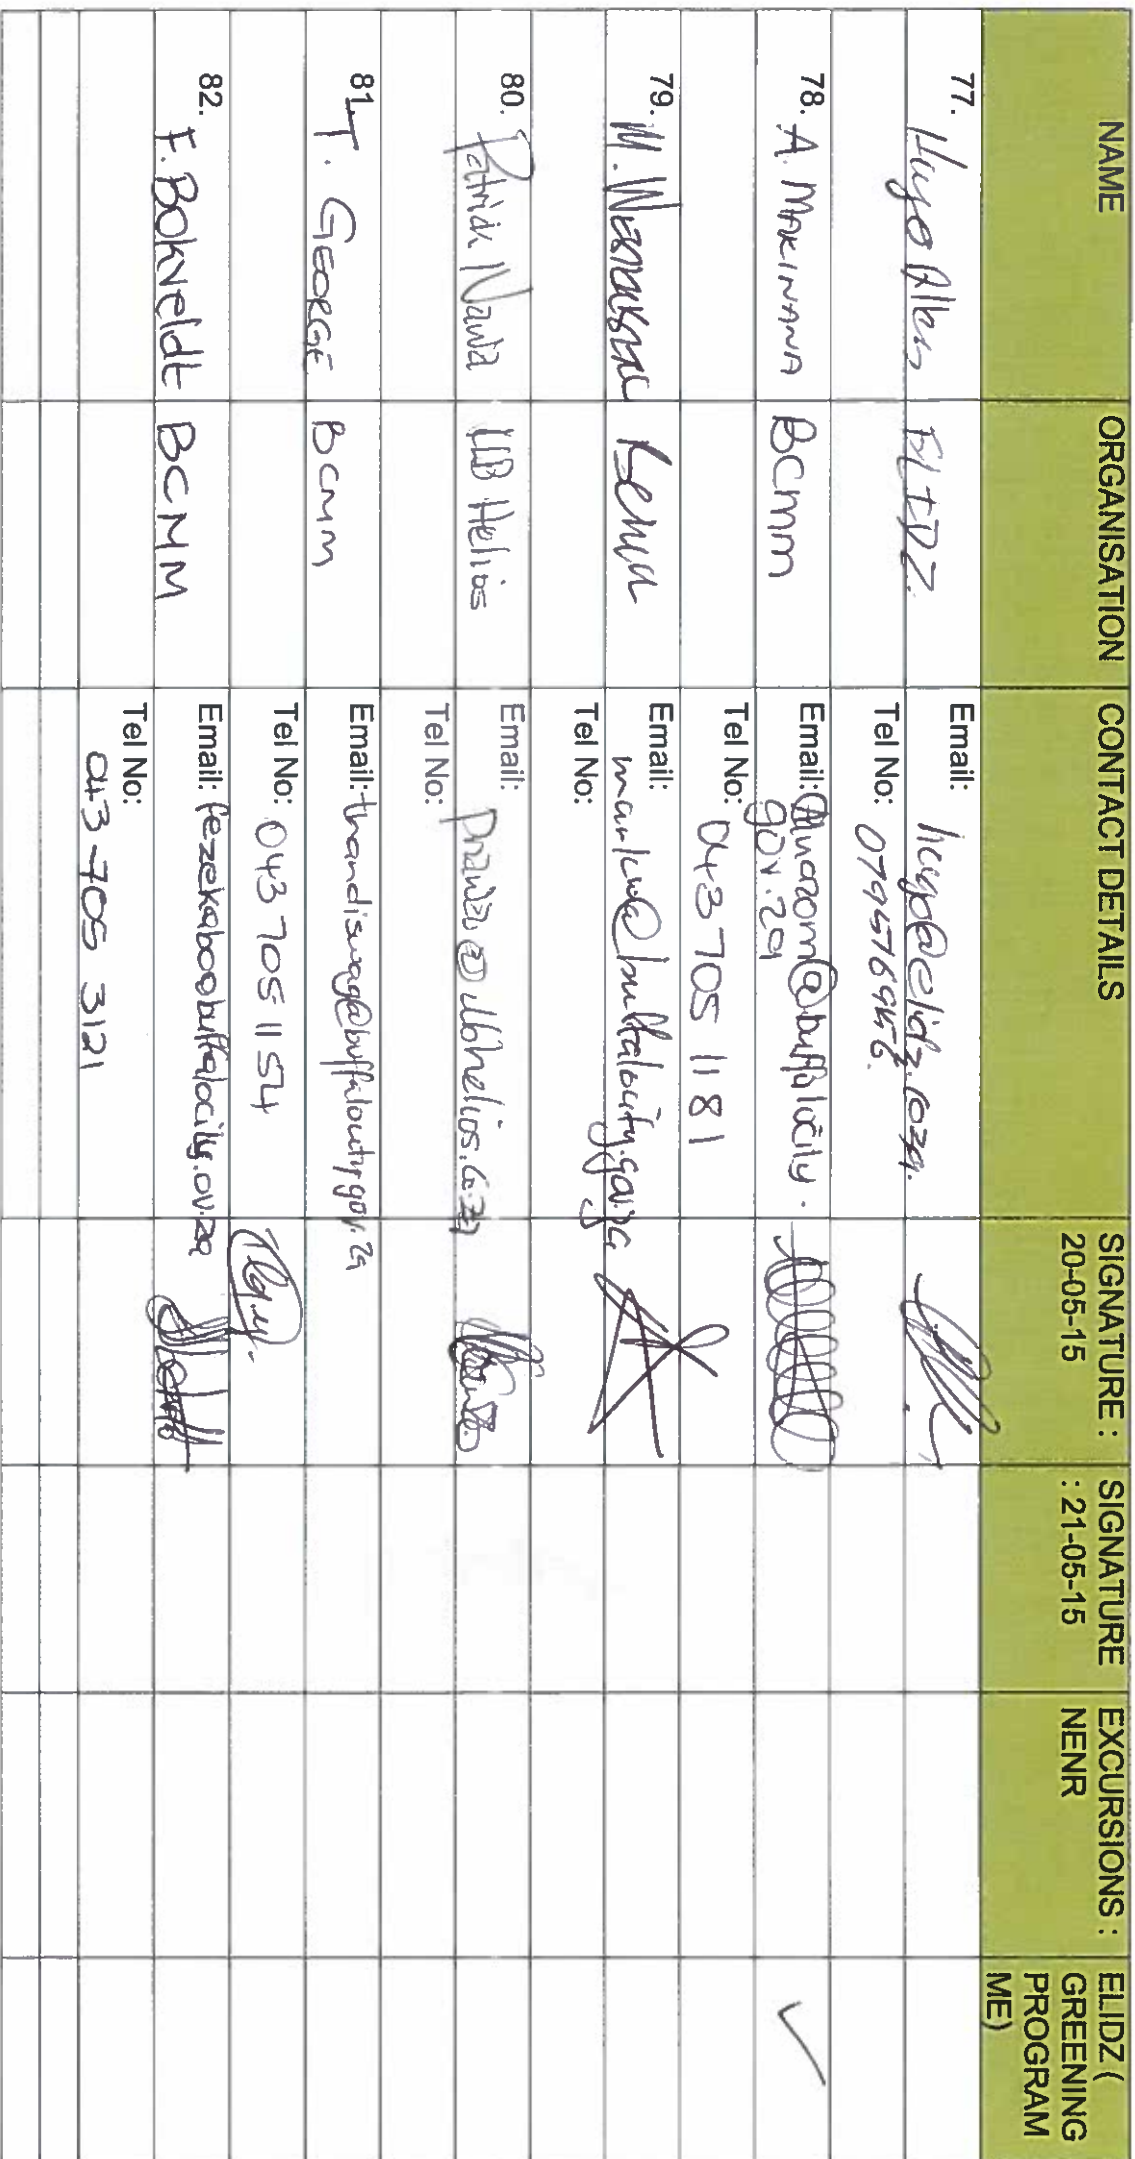 NAME ORGANISATION CONTACT DETAILS SIGNATURE : 20-05-15 SIGNATURE : 21-05-15 EXCURSIONS : NENR ELIDZ ( GREENING PROGRAM ME)
77. Hugo Allen ELIDZ Email: hugo@elidz.coza.
Tel No: 0795769456.
78. A. MAKINANA BCMM Email: @buffalocity.
gov.za
Tel No: 043 705 1181
79. M. Email: @buffalocity.gov.za
Tel No:
80. Patrick Nawa UB Helios Email: pnawa@ubhelios.co.za
Tel No:
81. T. GEORGE BCMM Email: thandiswag@buffalocity.gov.za
Tel No: 043 705 1154
82. F. Bokveldt BCMM Email: fezekaboobuffalocity.ov.za
Tel No:
043-705 3121